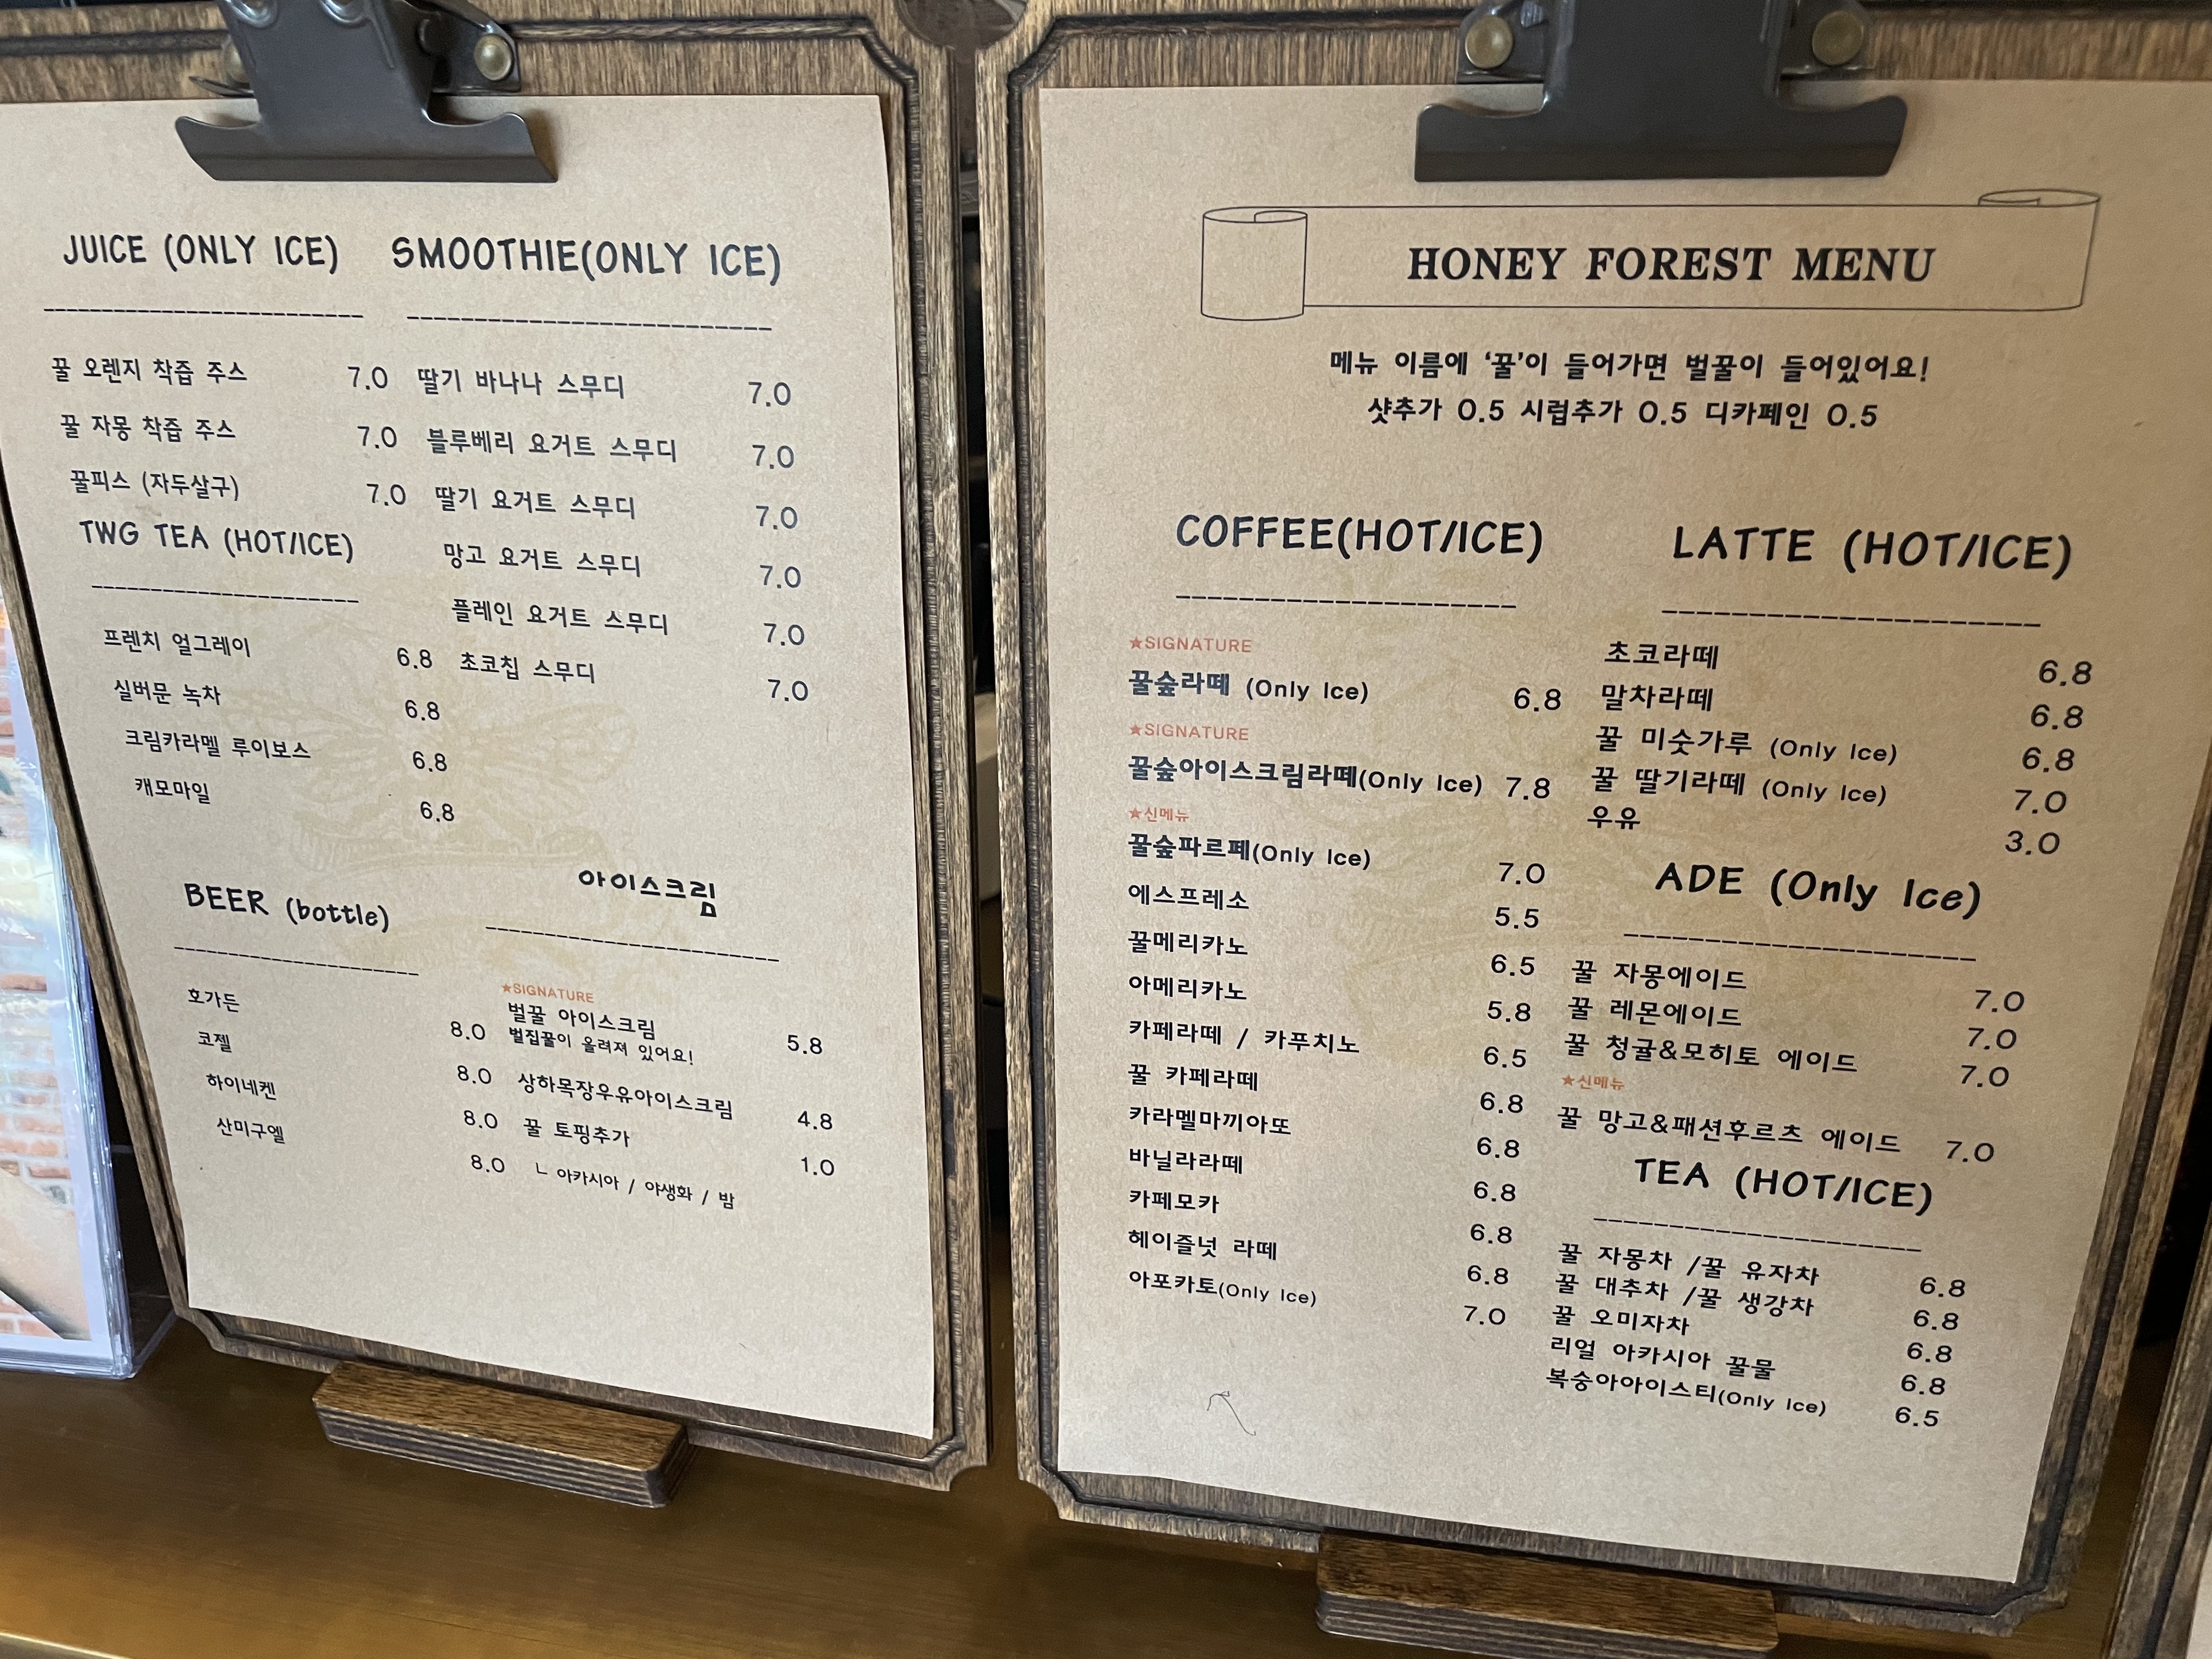 JUICE (ONLY ICE)
꿀 오렌지 착즙 주스 7.0
꿀 자몽 착즙 주스 7.0
꿀피스 (자두살구) 7.0
TWG TEA (HOT/ICE)
프렌치 얼그레이 6.8
실버문 녹차 6.8
크림카라멜 루이보스 6.8
캐모마일 6.8
SMOOTHIE(ONLY ICE)
딸기 바나나 스무디 7.0
블루베리 요거트 스무디 7.0
딸기 요거트 스무디 7.0
망고 요거트 스무디 7.0
플레인 요거트 스무디 7.0
초코칩 스무디 7.0
BEER (bottle)
호가든 8.0
코젤 8.0
하이네켄 8.0
산미구엘 8.0
아이스크림
★SIGNATURE
벌꿀 아이스크림 5.8
벌집꿀이 올려져 있어요!
상하목장우유아이스크림 4.8
꿀 토핑추가 1.0
ㄴ 아카시아 / 야생화 / 밤
HONEY FOREST MENU
메뉴 이름에 ‘꿀’이 들어가면 벌꿀이 들어있어요!
샷추가 0.5 시럽추가 0.5 디카페인 0.5
COFFEE(HOT/ICE)
★SIGNATURE
꿀숲라떼 (Only Ice) 6.8
★SIGNATURE
꿀숲아이스크림라떼(Only Ice) 7.8
★신메뉴
꿀숲파르페(Only Ice) 7.0
에스프레소 5.5
꿀메리카노 6.5
아메리카노 5.8
카페라떼 / 카푸치노 6.5
꿀 카페라떼 6.8
카라멜마끼아또 6.8
바닐라라떼 6.8
카페모카 6.8
헤이즐넛 라떼 6.8
아포카토(Only Ice) 7.0
LATTE (HOT/ICE)
초코라떼 6.8
말차라떼 6.8
꿀 미숫가루 (Only Ice) 6.8
꿀 딸기라떼 (Only Ice) 7.0
우유 3.0
ADE (Only Ice)
꿀 자몽에이드 7.0
꿀 레몬에이드 7.0
꿀 청귤&모히토 에이드 7.0
★신메뉴
꿀 망고&패션후르츠 에이드 7.0
TEA (HOT/ICE)
꿀 자몽차 /꿀 유자차 6.8
꿀 대추차 /꿀 생강차 6.8
꿀 오미자차 6.8
리얼 아카시아 꿀물 6.8
복숭아아이스티(Only Ice) 6.5